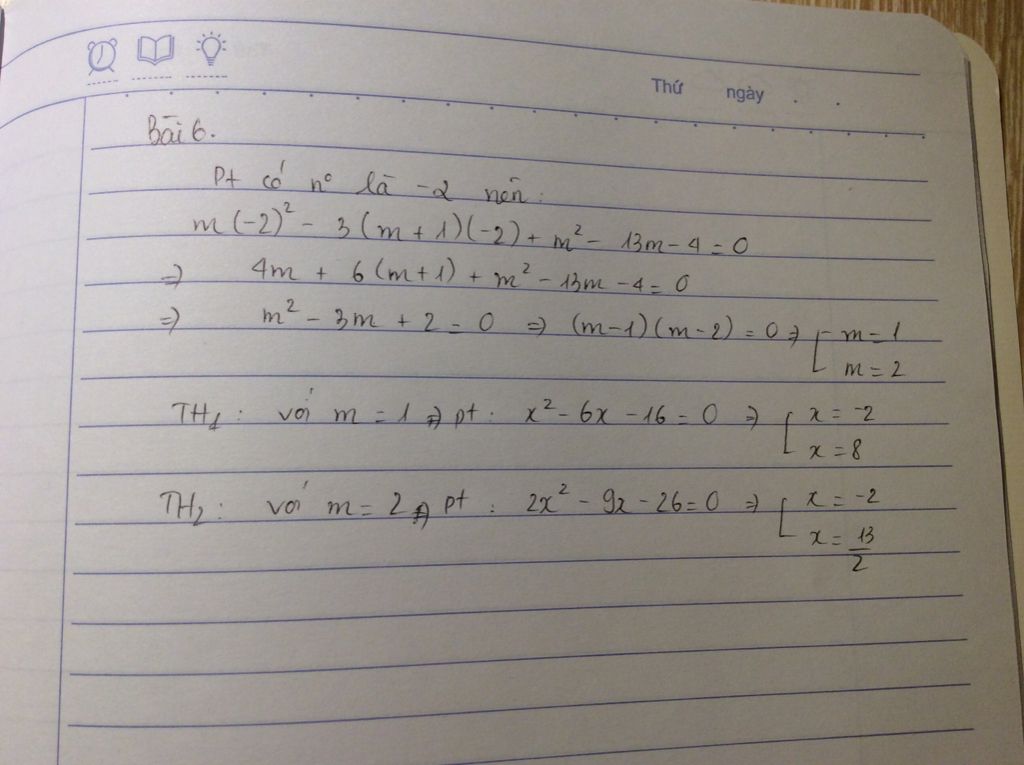 Thứ ngày . .
Bài 6.
Pt có n° là -2 nên:
m(-2)² - 3(m+1)(-2) + m² - 13m - 4 = 0
=> 4m + 6(m+1) + m² - 13m - 4 = 0
=> m² - 3m + 2 = 0 => (m-1)(m-2) = 0 => [ m = 1
m = 2
TH₁: với m = 1 => pt: x² - 6x - 16 = 0 => [ x = -2
x = 8
TH₂: với m = 2 => pt: 2x² - 9x - 26 = 0 => [ x = -2
x = 13/2